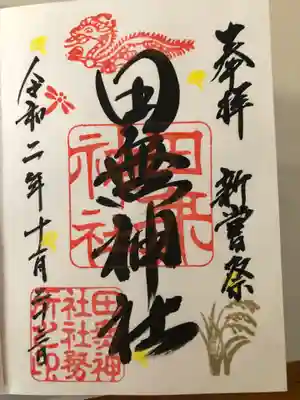 奉拝 新嘗祭
田無神社
田無神社
令和二年十一月二十三日
田無神社社務所之印